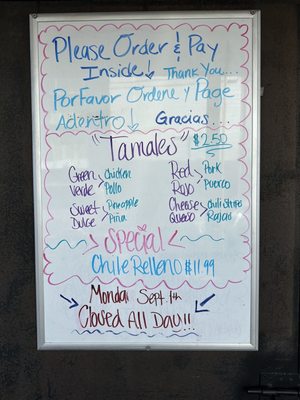 Please Order & Pay
Inside! Thank You...
Por Favor Ordene y Page
Adentro! Gracias....
"Tamales" $2.50
Green Chicken Red Pork
Verde Pollo Rojo Puerco
Sweet Pineapple Cheese Chili Strips
Dulce Piña Queso Rajas
Special
Chile Relleno $11.99
Monday Sept 1th
Closed All Day!!!